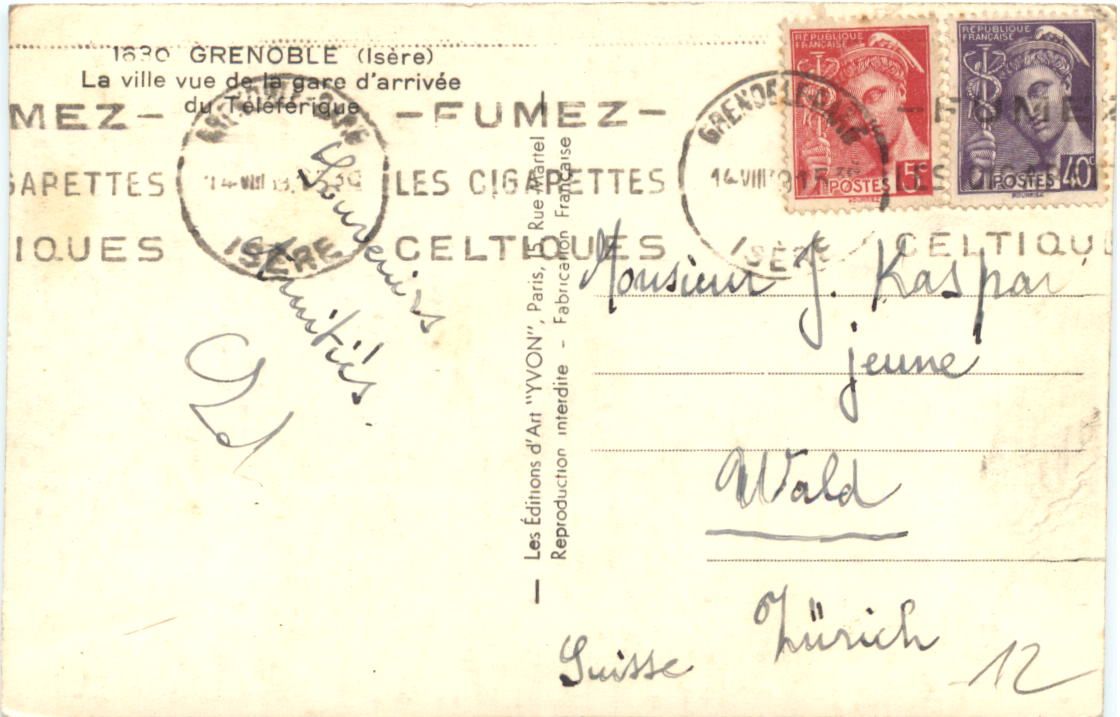 1630 GRENOBLE (Isère)
La ville vue de la gare d'arrivée
du Téléférique
MEZ – – FUMEZ – – FUMEZ
GARETTES LES CIGARETTES
IQUES CELTIQUES CELTIQU
GRENOBLE GARE
14 VIII 39 1530
ISÈRE
GRENOBLE GARE
14 VIII 39 1530
ISÈRE
RÉPUBLIQUE
FRANÇAISE
POSTES 5c
RÉPUBLIQUE
FRANÇAISE
POSTES 40c
Souvenirs
Amitiés.
Les Éditions d'Art "YVON", Paris, 15, Rue Martel
Reproduction interdite – Fabrication Française
Monsieur J. Kaspar
jeune
Wald
Zürich
Suisse
12